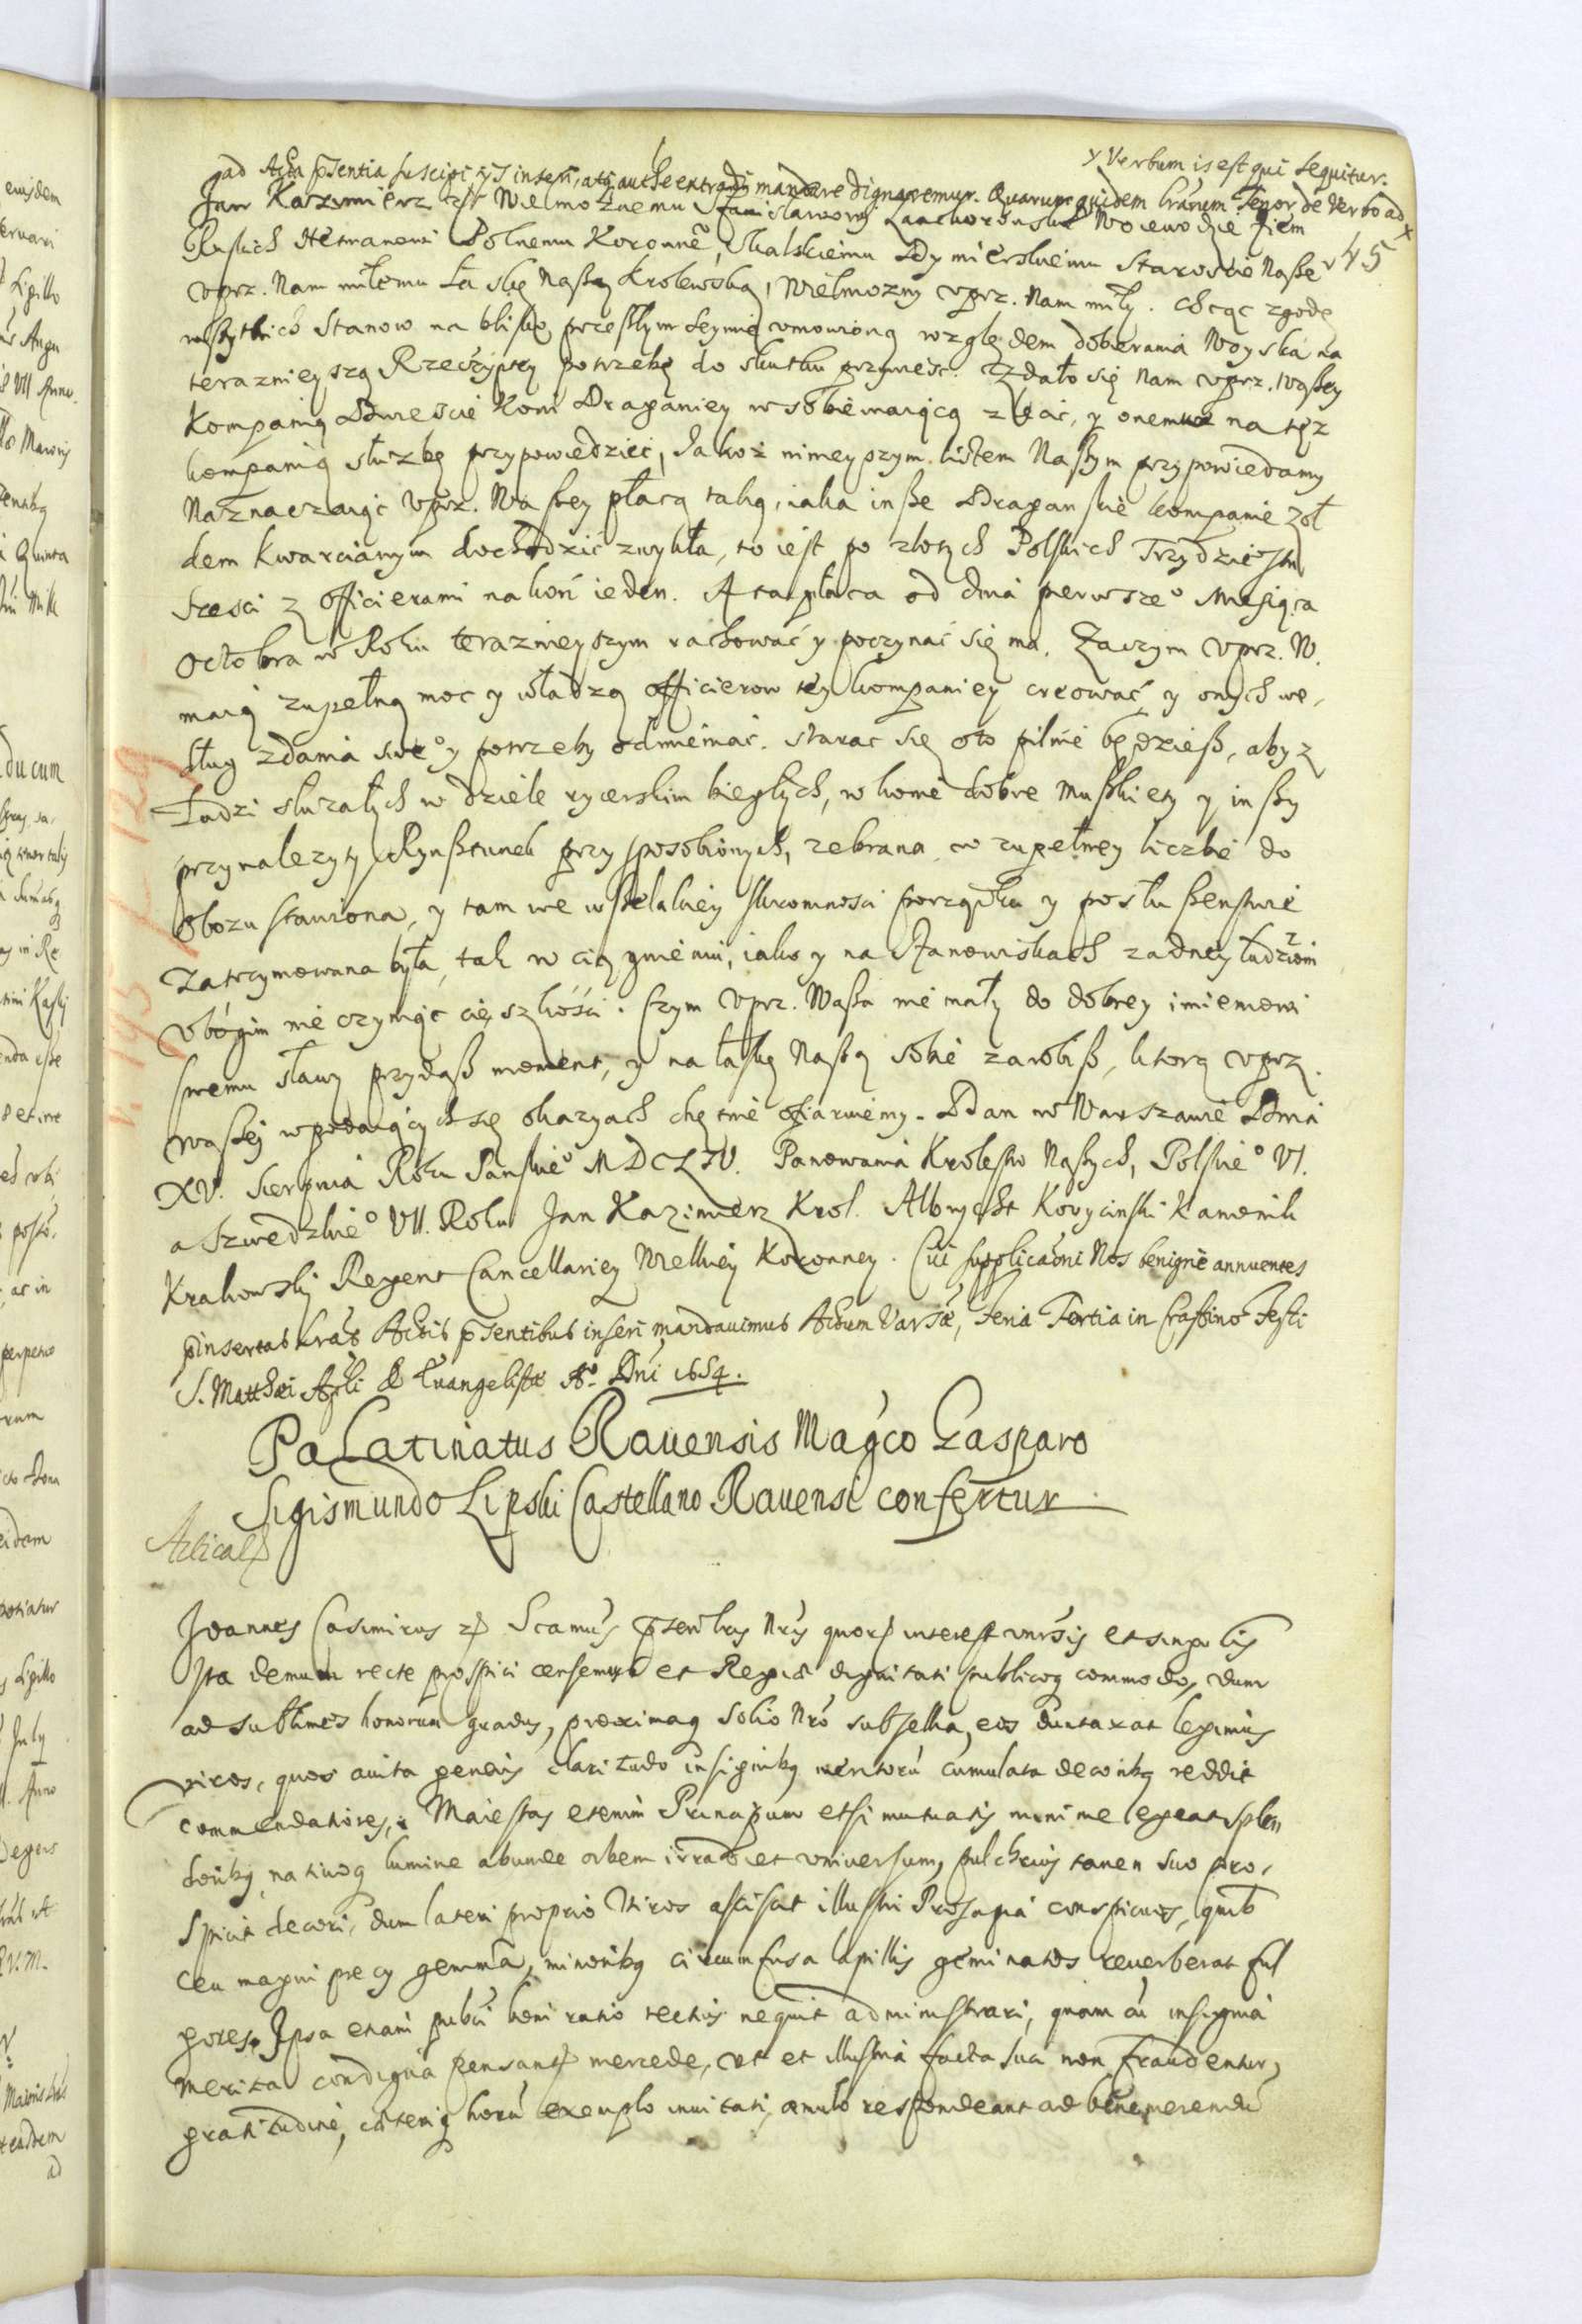 y Verbum is est qui sequitur.
ad Acta p̃sentia suscipi et inseri, authe extradi mandare dignaremur. Quarum quidem lrarum Tenor de Verbo ad
Jan Kazimierz etc Wielmożnemu Stanisławowi Lanckoronskie Woiewodzie Ziem
Ruskich Hetmanowi Polnemu Koronnē, Skalskiemu Dymierskiemu Staroscie Nasze
45
vprz. Nam miłemu Łaskę Naszą Krolewską, Wielmozny vprz. Nam miły. Chcąc zgodę
wszytkich Stanow na blisko przeszłym Seymie vmowioną względem dobierania Woyska na
teraznieyszą Rzeczyptey potrzebę do skutku przywieść. Zdało się Nam vprz. Waszey
Kompanią Dwiescie Koni Draganiey w sobie maiącą zlecic, y onemuz na tęz
kompanią służbę przypowiedzieć, Jakoż ninieyszym listem Naszym przypowiedamy
Naznaczaiąc Vprz. Waszey płacą taką, iaka insze Draganskie kompanie żoł
dem kwarcianym dochodzić zwykła, to iest po złotych Polskich Trzydziestu
szesci z officierami na koń ieden. A ta płaca od dnia pierwsze° Miesiąca
Octobra w Roku teraznieyszym rachować y poczynać się ma. Zaczym Vprz. W.
maią zupełną moc y władzą officierow tey kompaniey creować y onych we,
dług zdania swe° y potrzeby odmieniać. starac się oto pilnie będziesz, aby z
Ludzi służałych w dziele rycerskim biegłych, w konie dobre Muszkiety y inszy
przynalezyty Rynsztunek przysposobionych, zebrana w zupełney liczbie do
obozu stawiona, y tam we wszelakiey skromnosci porządku y posłuszenstwie
zatrzymowana była, tak w ciągnieniu, iako y na Stanowiskach zadney ludziom
vbogim nie czyniąc cięszkości. Czym Vprz. Wasza nie mały do dobrey imieniowi
swemu sławy przydasz moment, y na łaskę Naszą sobie zarobisz, ktorą vprz.
Waszej w podaiących się okazyach chętnie ofiaruiemy. Dan w Warszawie Dnia
XV. Sierpnia Roku Panskie° MDCLIV. Panowania Krolestw Naszych, Polskie° VI.
a Szwedzkie° VII. Roku Jan Kazimierz Krol. Albrycht Korycinski Kanonik
Krakowski Regent Cancellariey Wielkiey Koronney. Cui supplicaōni Nos benigne annuentes
p̃insertas lras Actis p̃sentibus inseri mandauimus Actum Varsae, Feria Tertia in Crastino Festi
S. Matthaei Apli & Euangelistae A° Dni 1654.
Palatinatus Rauensis Mag̃co Gasparo
Sigismundo Lipski Castellano Rauensi confertur
Joannes Casimirus etc Sc̃amus p̃sentibus Nr̃is quorum interest vnr̃sis et singulis
Ita demum recte prospici censemus et Regiae dignitati publicoq commodo, dum
ad sublimes honorum gradus, proximaq Solio Nr̃o subsellia, eos duntaxat legimus
viros, quos auita generis claritudo insignibq meritorũ cumulata decoribq reddit
commendatiores. Maiestas etenim Principum etsi mutuatis minime egeat splen
doribq, natiuoq lumine abunde orbem irradiet vniuersum, pulchrius tamen suo pro,
spicit decori, dum lateri proprio Viros asciscit illustri Prosapia conspicuos, quib
ceu magni precy gemma, minoribq circumfusa lapillis geminatos reuerberat ful
gores. Ipsa etiam publi boni ratio rectius nequit administrari, quam cũ insignia
merita condigna pensantur mercede, vt et illustria facta sua non fraudentur,
gratitudine, caeteriq horũ exemplo inuitati, aemulo respondeant ad bene merendũ